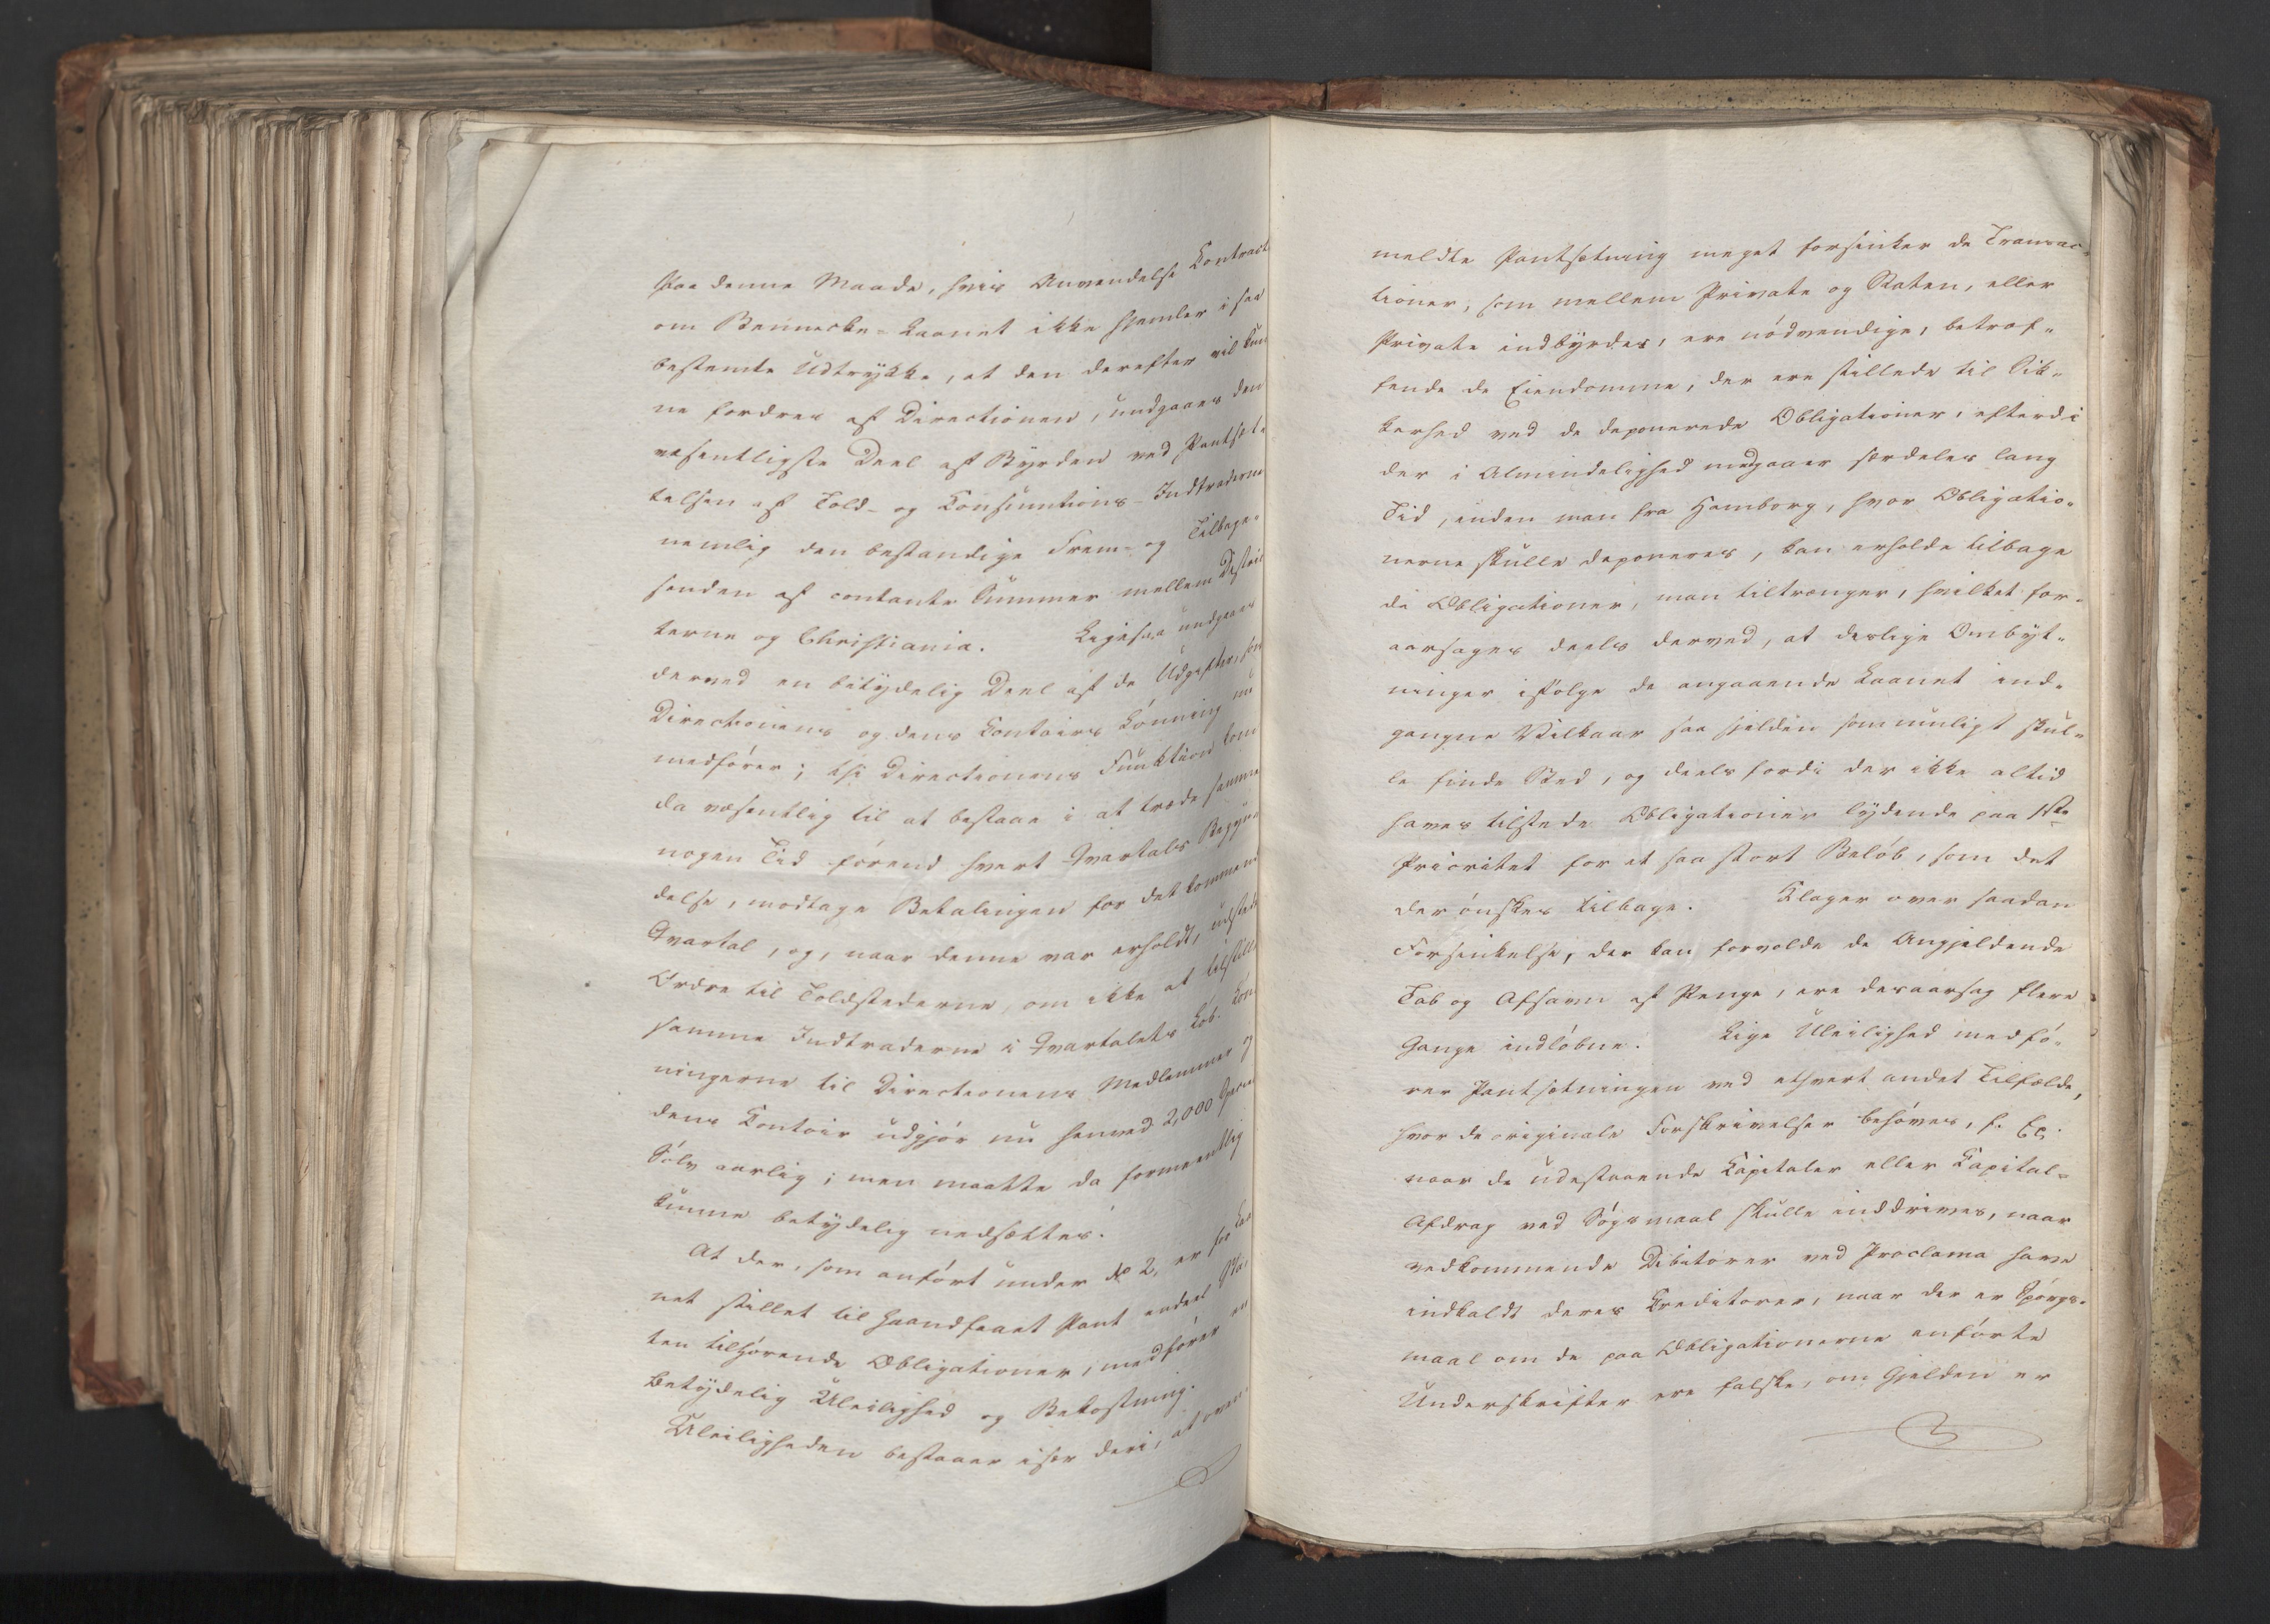 Paa denne Maade, hvis Anvendelse Contract
om Bennecke-Laanet ikke hjemler i saa
bestemte Udtrykke, at den derefter vil kun
ne fordres af Directionen, undgaaes den
væsentligste Deel af Byrden ved Pantsæt-
telsen af Told- og Consumtions-Indtraderne
nemlig den bestandige Frem- og Tilbage-
senden af contante Summer mellem Distric
terne og Christiania. Ligesaa undgaaes
derved en betydelig Deel af de Udgifter, som
Directionens og dens Contoirs Lønning nu
medfører; thi Directionens Funktion kom
da væsentlig til at bestaae i at træde sammen
nogen Tid førend hvert Qvartals Begyn
delse, modtage Betalingen for det kommende
Qvartal, og, naar denne var erholdt, udstede
Ordre til Toldstederne, om ikke at tilstille
samme Indtraderne i Qvartalets Løb. Løn
ningerne til Directionens Medlemmer og
dens Contoir udgjør nu henved 2,000 Specier
Sølv aarlig; men maatte da formeentlig
kunne betydelig nedsættes.
At der, som anført under No 2, er for Laa
net stillet til haandfaaet Pant endeel Sta
ten tilhørende Obligationer, medfører en
betydelig Uleilighed og Bekostning.
Uleiligheden bestaaer især deri, at oven
meldte Pantsætning meget forsinker de Transac
tioner, som mellem Private og Staten, eller
Private indbyrdes, ere nødvendige, betref-
fende de Eiendomme, der ere stillede til Sik-
kerhed ved de deponerede Obligationer, efterdi
der i Almindelighed medgaaer særdeles lang
Tid, inden man fra Hamborg, hvor Obligatio-
nerne skulle deponeres, kan erholde tilbage
de Obligationer, man tiltrænger, hvilket for-
aarsages deels derved, at deslige Ombyt-
ninger ifølge de angaaende Laanet ind-
gangne Vilkaar saa sjelden som muligt skul-
le finde Sted, og deels fordi der ikke altid
haves tilstede Obligationer lydende paa 1ste
Prioritet for et saa stort Beløb, som det
der ønskes tilbage. Klager over saadan
Forsinkelse, der kan forvolde de Angjeldende
Tab og Afsavn af Penge, ere desaarsag flere
Gange indløbne. Lige Uleilighed medfø-
rer Pantsætningen ved ethvert andet Tilfælde,
hvor de originale Forskrivelser behøves, f. Ex.
naar de udestaaende Capitaler eller Capital-
Afdrag ved Søgsmaal skulle inddrives, naar
vedkommende Debitorer ved Proclama have
indkaldt deres Creditorer, naar der er Spørgs-
maal om de paa Obligationerne anførte
Underskrifter ere falske, om Gjelden er